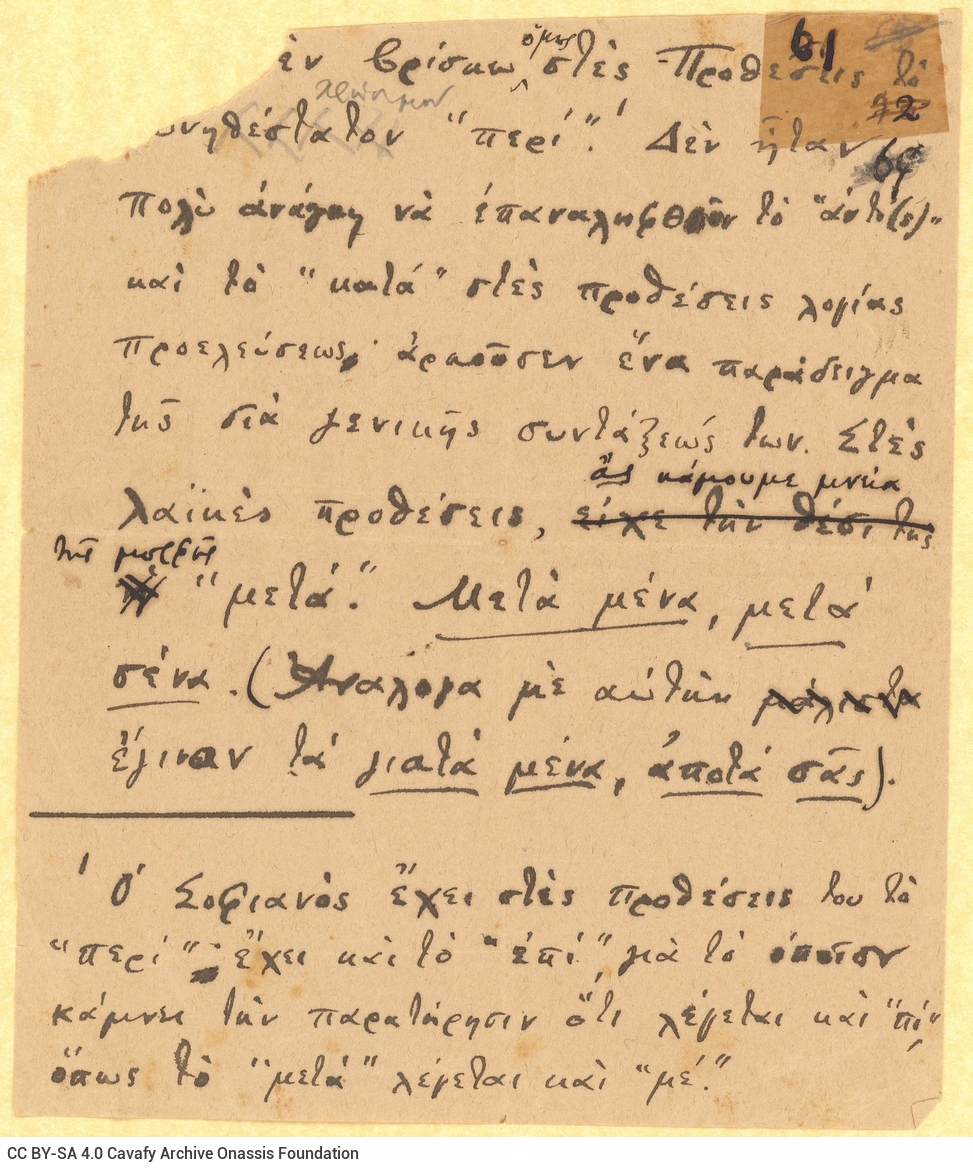 61
ὲν βρίσκω ὅμως στὲς Προθέσεις τὸ
χρήσιμον
υνηθέστατον "περί".¹ Δὲν ἦταν
πολὺ ἀνάγκη νὰ ἐπαναληφθοῦν τὸ "ἀντί(ς)"
καὶ τὸ "κατά" στὲς προθέσεις λογίας
προελεύσεως· ἀρκοῦσεν ἕνα παράδειγμα
τῆς διὰ γενικῆς συντάξεώς των. Στὲς
ἂς κάμουμε μνεία
λαϊκὲς προθέσεις, εἶχε τὴν θέσι της
τῆς μορφῆς
"μετά." Μετὰ μένα, μετὰ
σένα. (Ἀνάλογα μὲ αὐτὴν μάλιστα
ἔγιναν τὰ γιατὰ μένα, ἀποτὰ σᾶς).
¹ Ὁ Σοφιανὸς ἔχει στὲς προθέσεις του τὸ
"περί"· ἔχει καὶ τὸ "ἐπί", γιὰ τὸ ὁποῖον
κάμνει τὴν παρατήρησιν ὅτι λέγεται καὶ "πί",
ὅπως τὸ "μετά" λέγεται καὶ "μέ."
CC BY-SA 4.0 Cavafy Archive Onassis Foundation